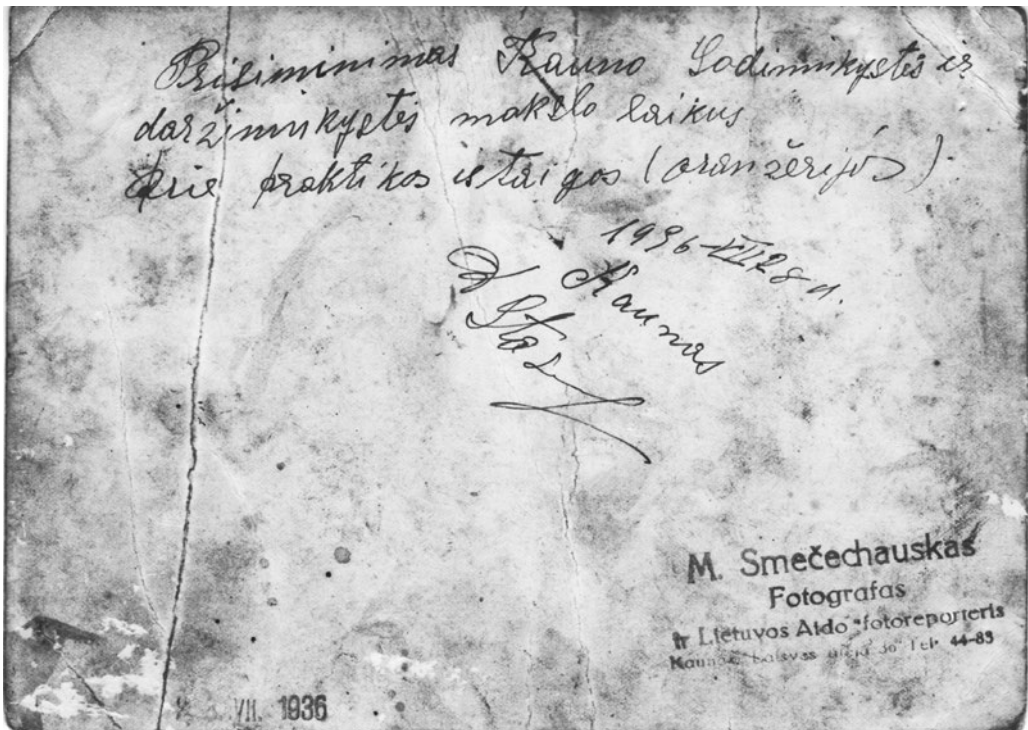 Prisiminimas Kauno Sodininkystės ir
daržininkystės mokslo laikus
prie praktikos įstaigos (oranžerijos)
1936-VII 28 d.
Kaunas
M. Smečechauskas
Fotografas
ir Lietuvos Aido fotoreporteris
Kaunas, Laisvės Tel. 44-83
VII. 1936